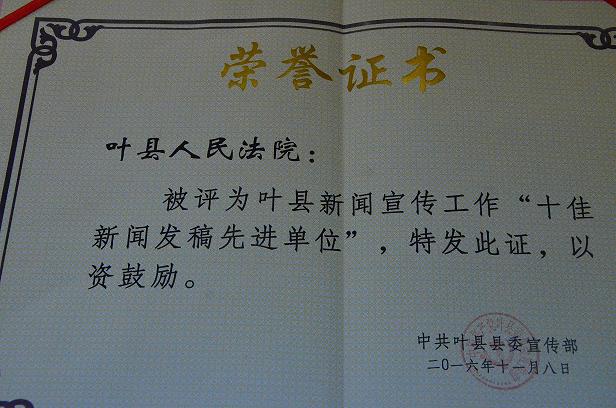 荣誉证书
叶县人民法院：
被评为叶县新闻宣传工作“十佳
新闻发稿先进单位”，特发此证，以
资鼓励。
中共叶县县委宣传部
二〇一六年十一月八日